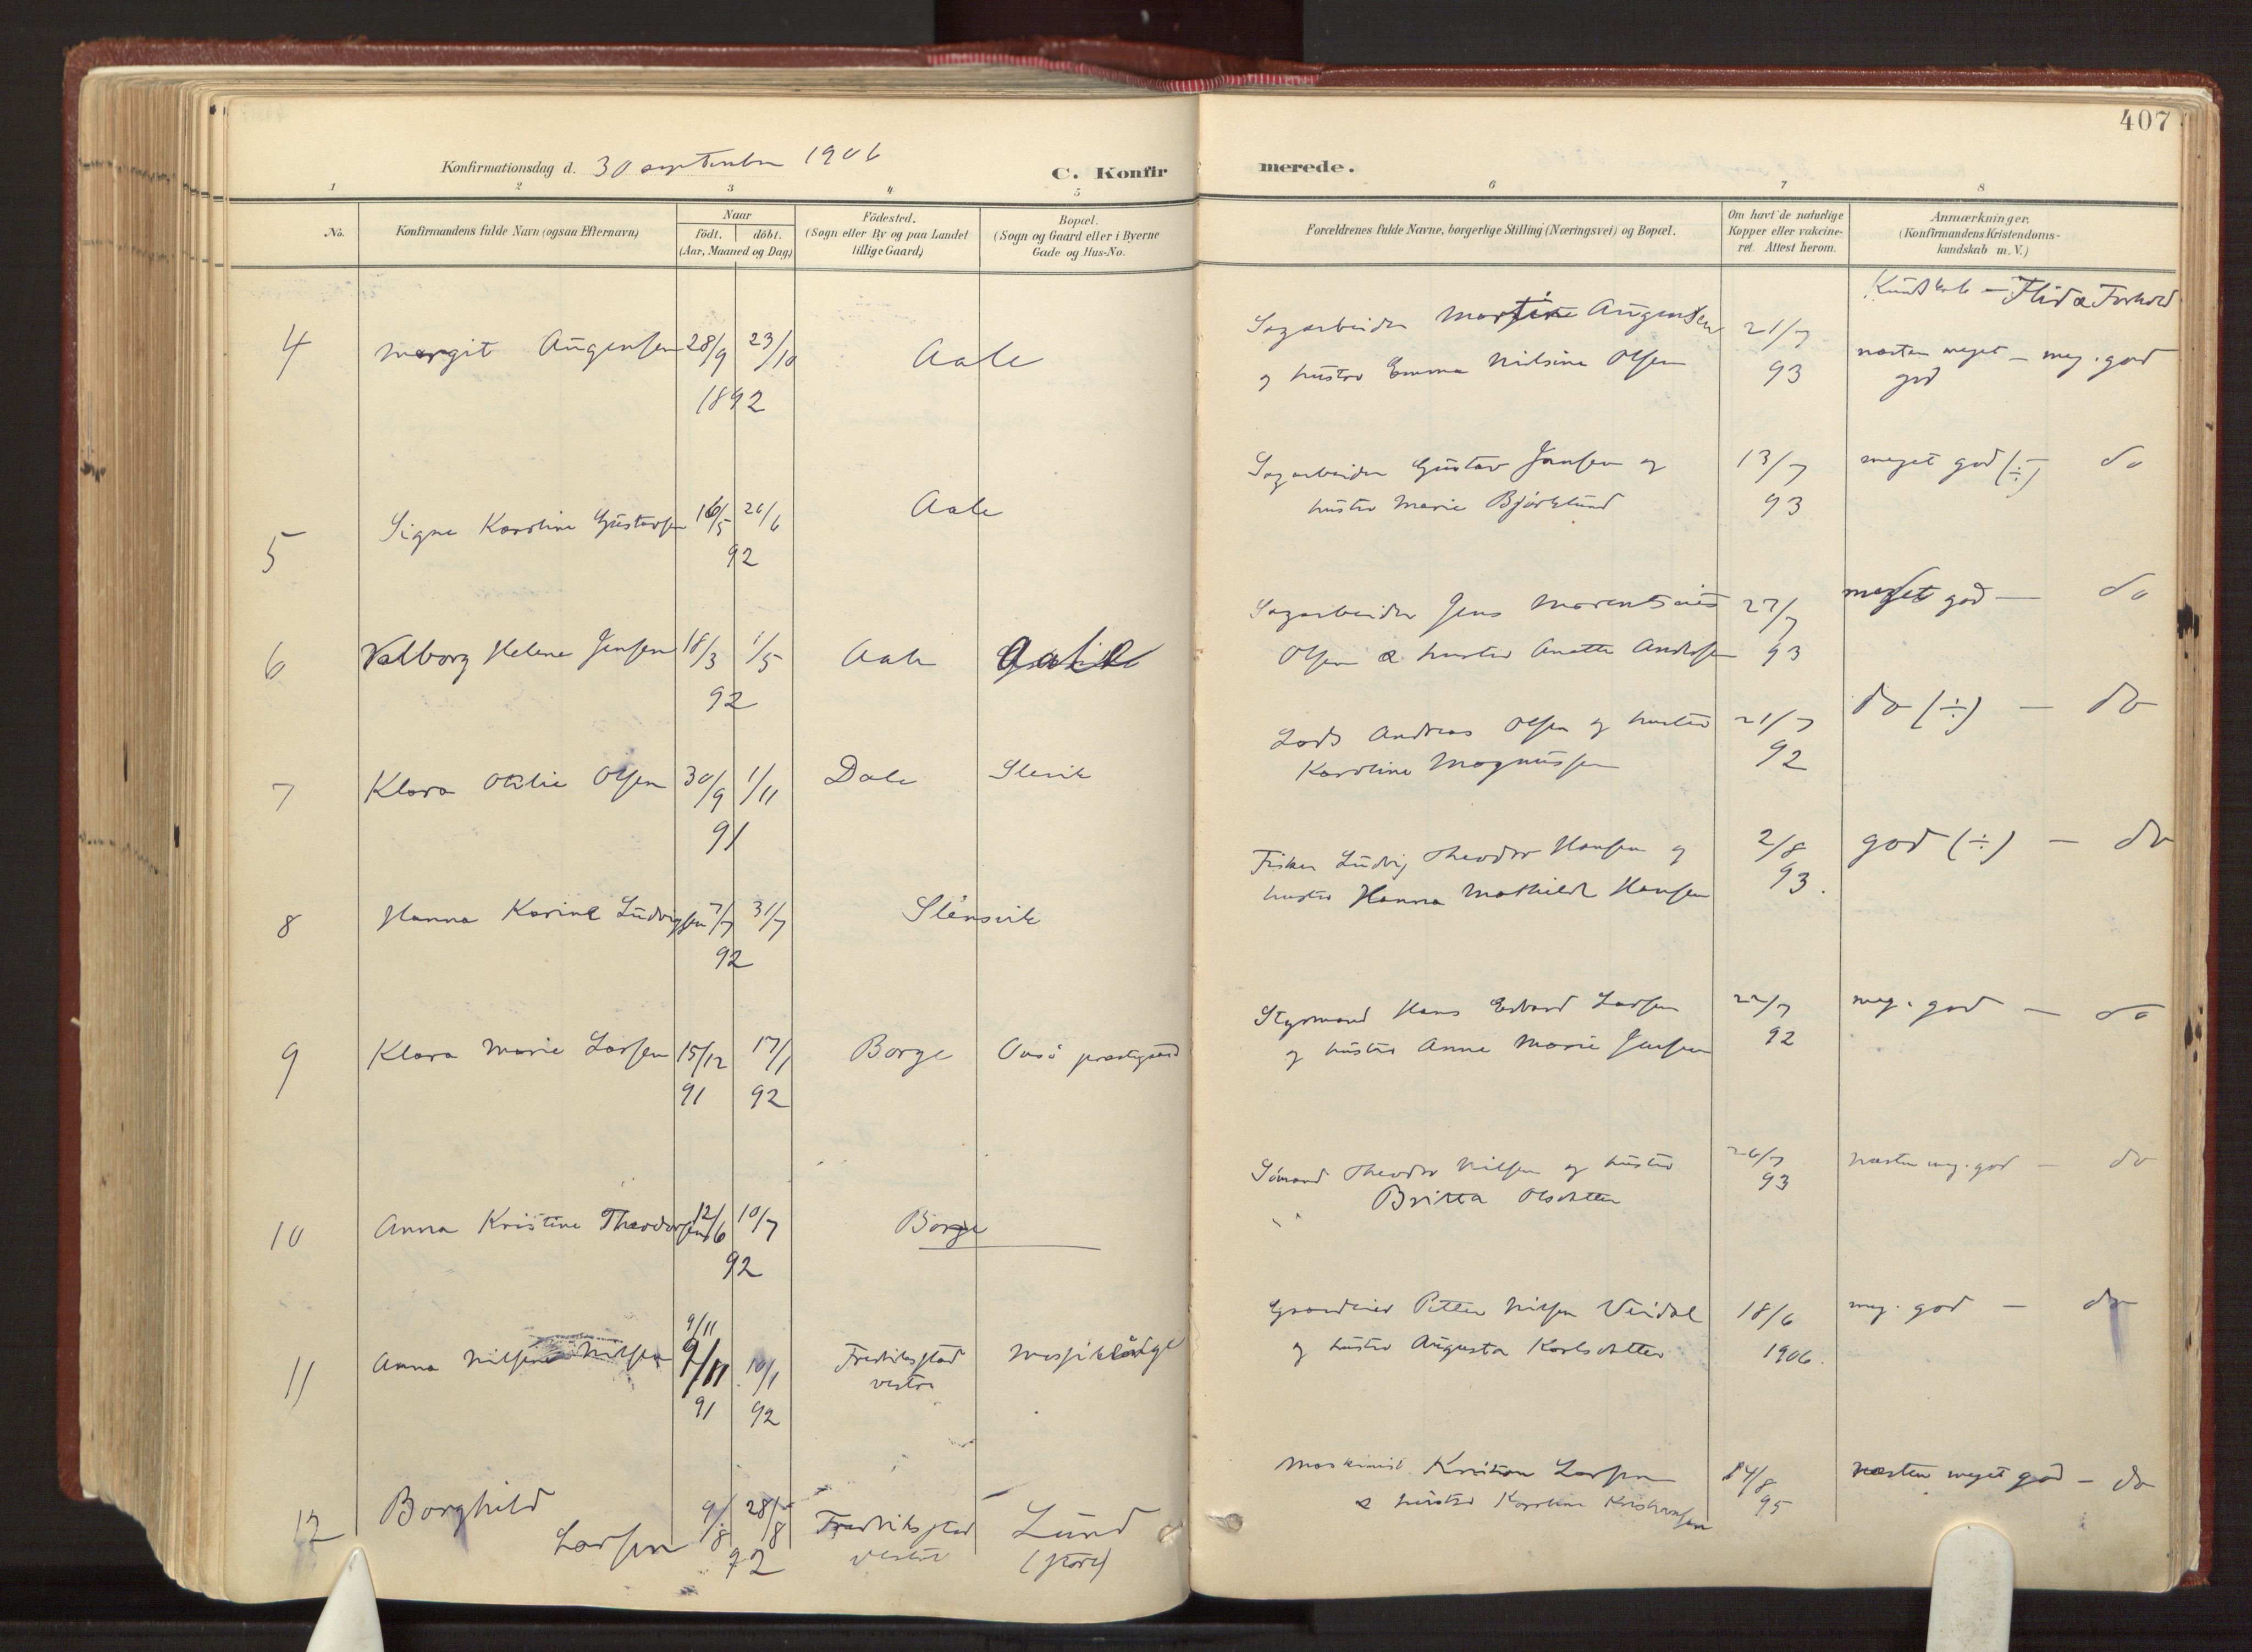 407
Konfirmationsdag d. 30 september 1906
C. Konfirmerede.
1 2 3 4 5 6 7 8
No.
Konfirmandens fulde Navn (ogsaa Efternavn)
Naar
födt. döbt.
(Aar, Maaned og Dag)
Födested.
(Sogn eller By og paa Landet
tillige Gaard)
Bopæl.
(Sogn og Gaard eller i Byerne
Gade og Hus-No.
Forældrenes fulde Navne, borgerlige Stilling (Næringsvei) og Bopæl.
Om havt de naturlige
Kopper eller vakcine-
ret. Attest herom.
Anmærkninger,
(Konfirmandens Kristendoms-
kundskab m. V.)
Kundskab — Flid & Forhold
4 Margit Augensen 28/9 23/10 Aale
1892
Sagarbeider Augensen 21/7
og hustro Emma Nilsine Olsen 93
næsten meget — meg. god
god
5 Signe Karoline Gustavsen 16/5 26/6 Aale
92
Sagarbeider Gustav Jansen og 13/7 meget god (÷) — do
hustro Marie Björklund 93
6 Valborg Helene Jensen 18/3 1/5 Aale Aale
92
Sagarbeider Jens Marentsius 27/7 meget god — do
Olsen & hustro Anette Andersen 93
7 Klara Otilie Olsen 30/9 1/11 Dale Slevik
91
Lods Andreas Olsen og hustro 21/7 do (÷) — do
Karoline Magnussen 92
8 Hanna Karine Ludvigsen 7/7 31/7
92
Fisker Ludvig Theodor Hansen og 2/8 god (÷) — do
hustro Hanna Mathilde Hansen 93.
9 Klara Marie Larsen 15/12 17/1 Borge Onsö prestegaard
91 92
Styrmand Hans Edvard Larsen 22/7 meg. god — do
og hustro Anne Marie Jensen 92
10 Anna Kristine Theodorsen 12/6 10/7 Borge
92
Sömand Theodor Nilsen og hustro 26/7 næsten meg. god — do
Britta Olsdatter 93
9/11
11 Anna Nilsine Nilsen 9/11 10/1 Fredriksstad
vestre
91 92
Gaardeier Petter Nilsen Veidal 18/6 meg. god — do
og hustro Augusta Karlsdatter 1906.
12 Borghild
Larsen 9/8 28/8 Fredriksstad Lund
92 vestre (store)
Maskinist Kristian Larsen 14/8 næsten meget god — do
& hustro Karoline Kristiansen 95